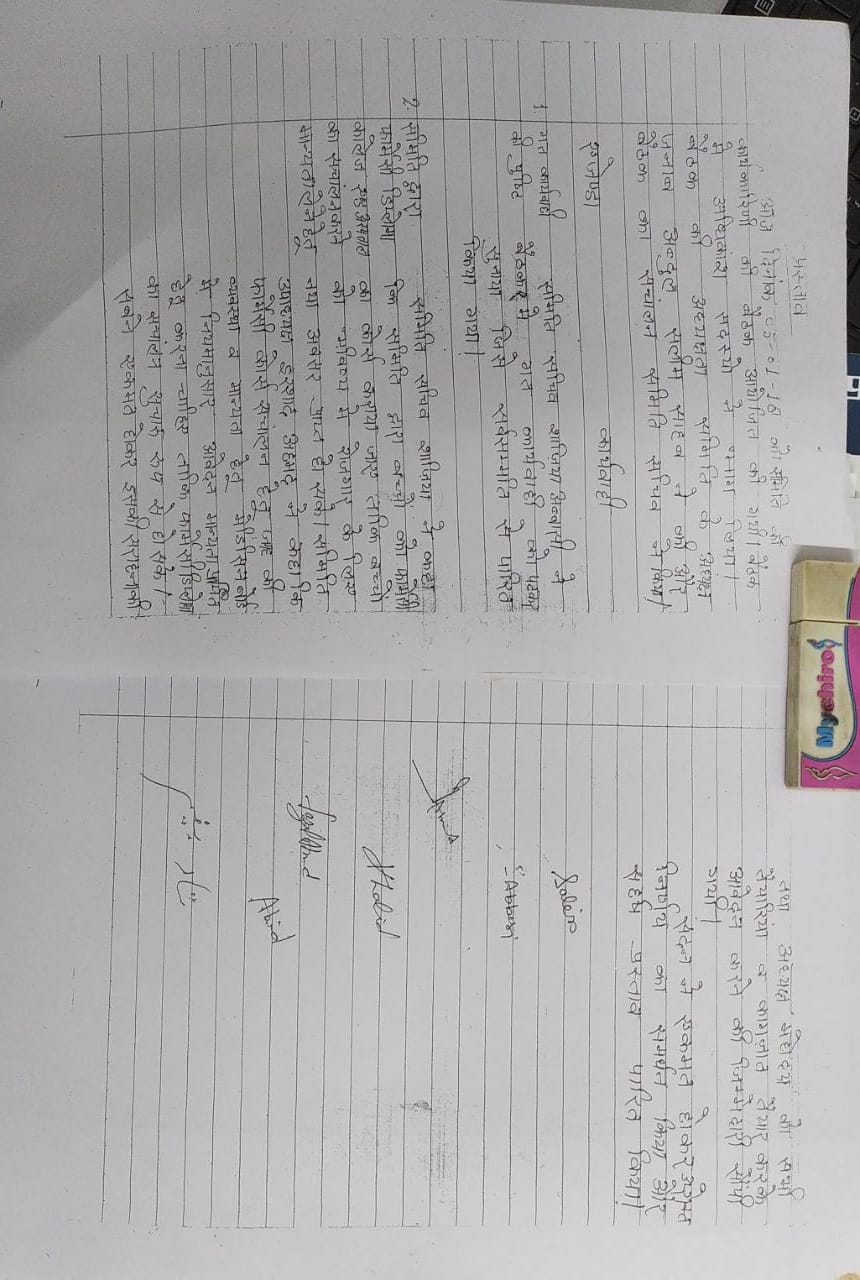 प्रस्ताव
आज दिनांक 05-01-18 को समिति की
कार्यकारिणी की बैठक आयोजित की गयी। बैठक
में अधिकांश सदस्यो ने भाग लिया।
बैठक की अध्यक्षता समिति के अध्यक्ष
जनाब अब्दुल सलीम साहब ने की और
बैठक का संचालन समिति सचिव ने किया।
एजेण्डा कार्यवाही
1. गत कार्यवाही समिति सचिव शाजिया अब्बासी ने
की पुष्टि बैठक में गत कार्यवाही को पढ़कर
सुनाया जिसे सर्वसम्मति से पारित
किया गया।
2. समिति द्वारा समिति सचिव शाजिया ने कहा
फार्मेसी डिप्लोमा कि समिति द्वारा बच्चो को फार्मेसी
कालेज का कोर्स कराया जाए ताकि बच्चो
का संचालन करने को भविष्य मे रोजगार के लिए
मान्यता लेने हेतु नया अवसर प्राप्त हो सके। समिति
उपाध्यक्ष इरशाद अहमद ने कहा कि
फार्मेसी कोर्स संचालन हेतु जगह की
व्यवस्था व मान्यता हेतु
मे नियमानुसार आवेदन मान्यता प्राप्त
हेतु करना चाहिए ताकि फार्मेसी डिप्लोमा
का संचालन सुचारू रूप से हो सके।
सबने एकमत होकर इसकी सराहना की
तथा अध्यक्ष महोदय को सभी
तैयारियां व कागजात तैयार करके
आवेदन करने की जिम्मेदारी सौंपी
गयी।
सदन ने एकमत होकर उपरोक्त
निर्णय का समर्थन किया और
सहर्ष प्रस्ताव पारित किया।
Salim
S. Abbasi
Khalid
Abid
Mychiro